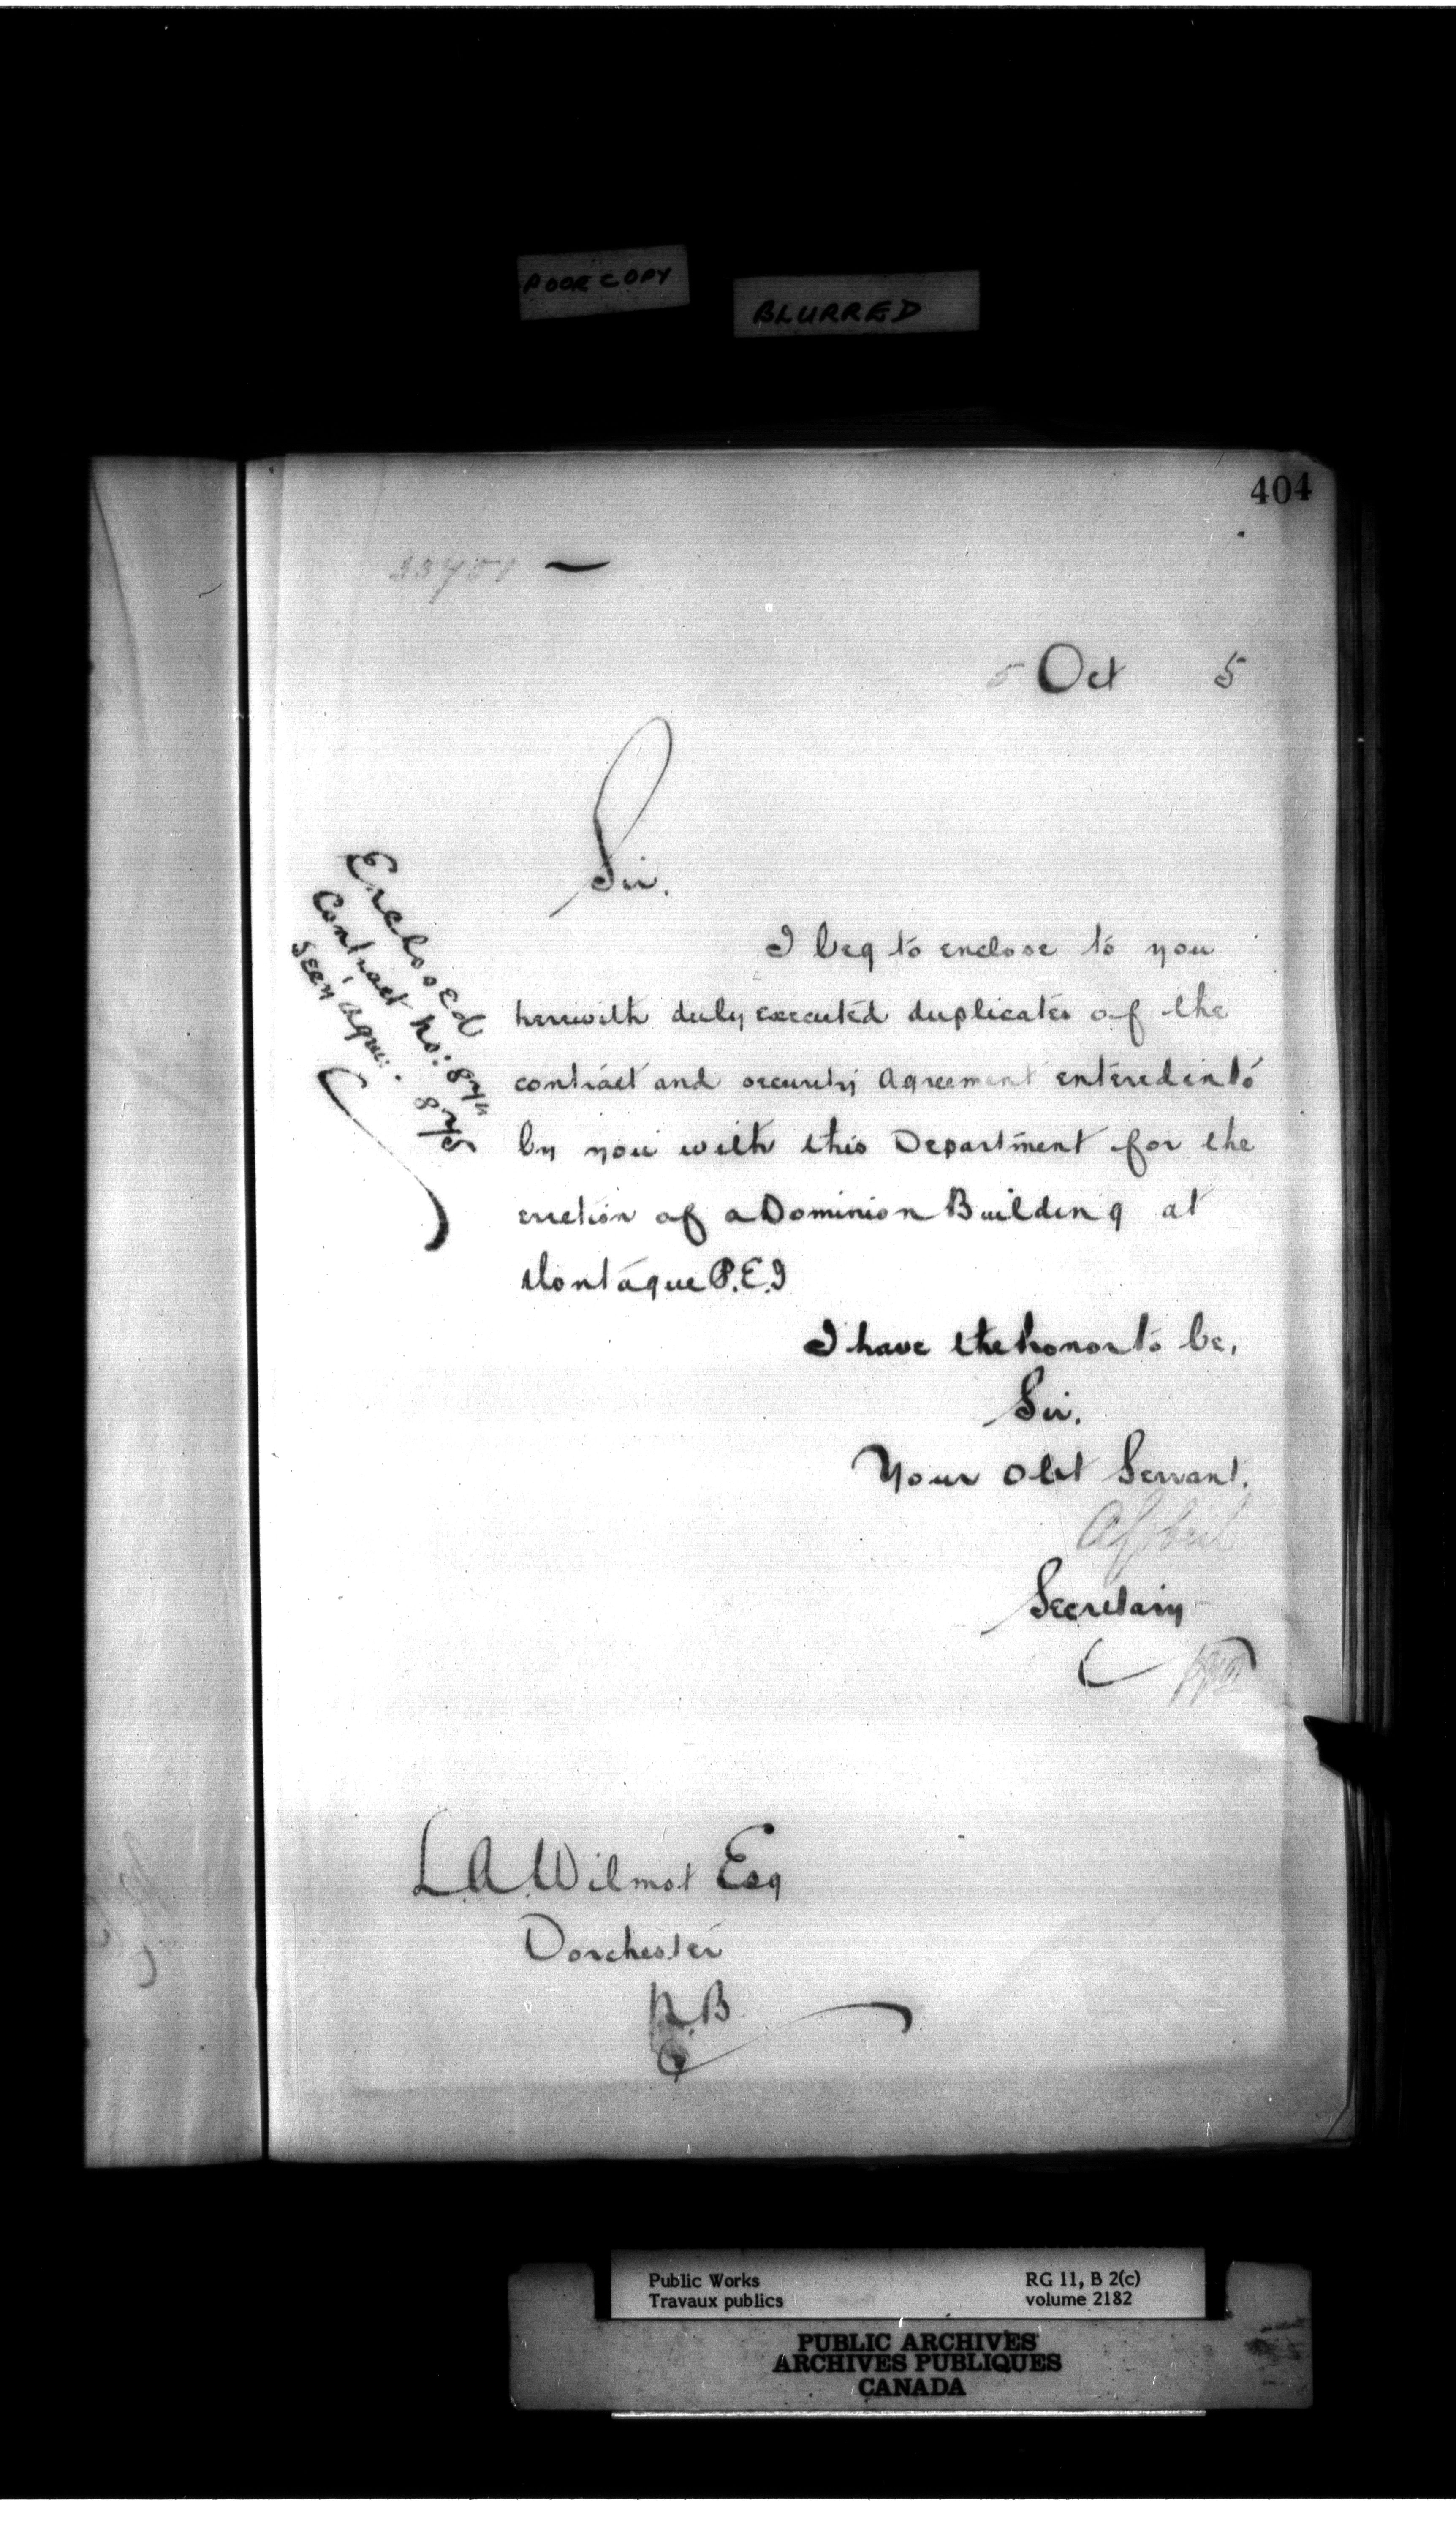 POOR COPY
BLURRED
404
33451 —
5 Oct 5
Sir.
Enclosed
Contract No: 874
Sec'y Agre: 875
I beg to enclose to you
herewith duly executed duplicates of the
contract and security Agreement entered into
by you with this Department for the
erection of a Dominion Building at
Montague P.E.I
I have the honor to be,
Sir.
Your Obt Servant.
AGobeil
Secretary
L.A. Wilmot Esq
Dorchester
N.B
Public Works
Travaux publics
RG 11, B 2(c)
volume 2182
PUBLIC ARCHIVES
ARCHIVES PUBLIQUES
CANADA